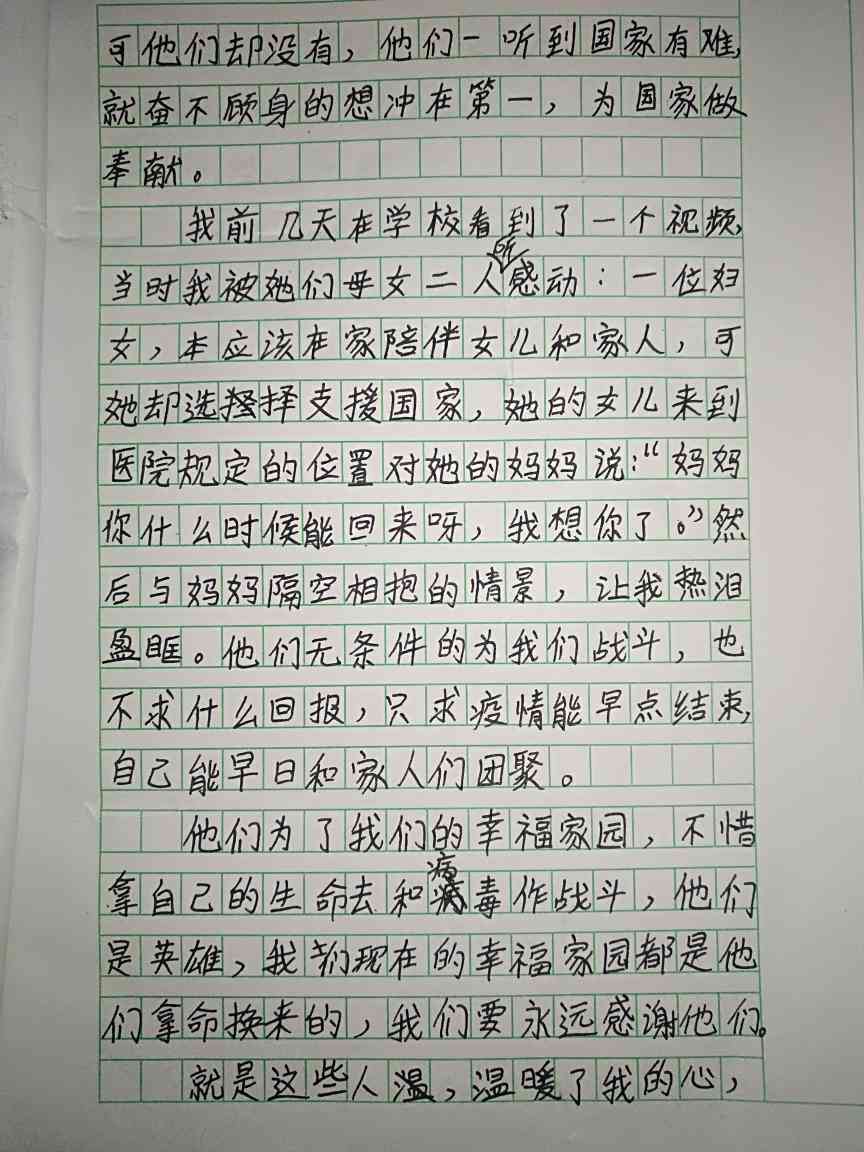 可他们却没有，他们一听到国家有难，
就奋不顾身的想冲在第一，为国家做
奉献。
我前几天在学校看到了一个视频，
当时我被她们母女二人所感动：一位妇
女，本应该在家陪伴女儿和家人，可
她却选择支援国家，她的女儿来到
医院规定的位置对她的妈妈说：“妈妈
你什么时候能回来呀，我想你了。”然
后与妈妈隔空相抱的情景，让我热泪
盈眶。他们无条件的为我们战斗，也
不求什么回报，只求疫情能早点结束，
自己能早日和家人们团聚。
他们为了我们的幸福家园，不惜
拿自己的生命去和病毒作战斗，他们
是英雄，我们现在的幸福家园都是他
们拿命换来的，我们要永远感谢他们。
就是这些人温，温暖了我的心，